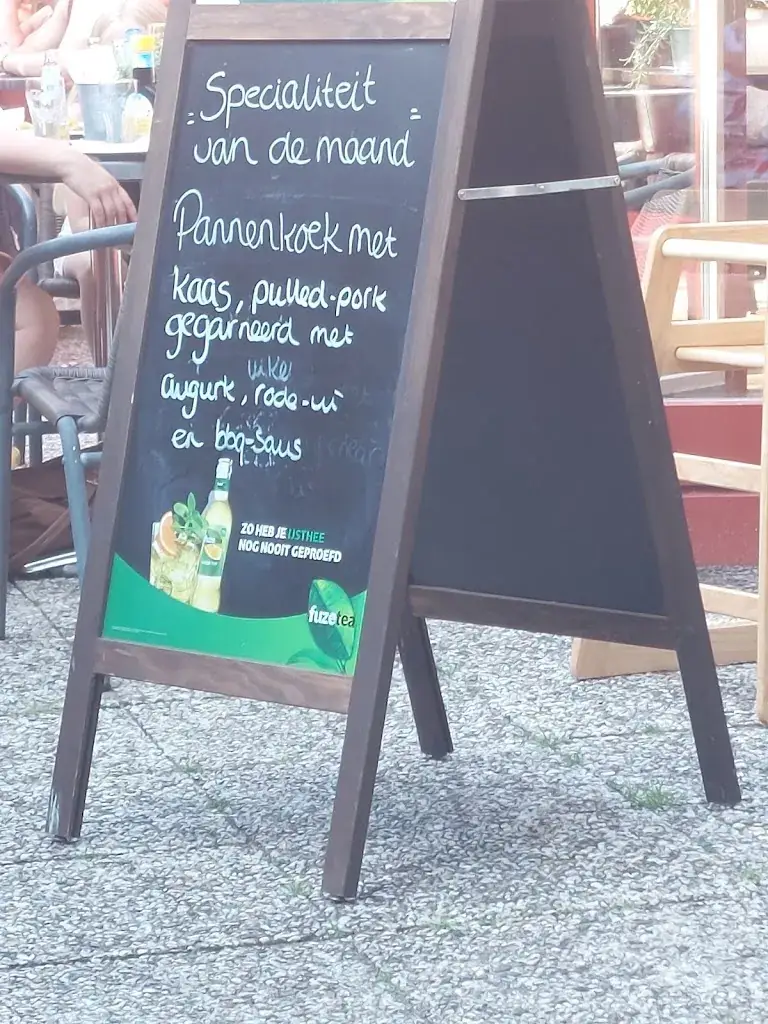 Specialiteit
van de maand
Pannenkoek met
kaas, pulled-pork
gegarneerd met
augurk, rode-ui
en bbq-saus
ZO HEB JE IJSTHEE
NOG NOOIT GEPROEFD
fuzetea